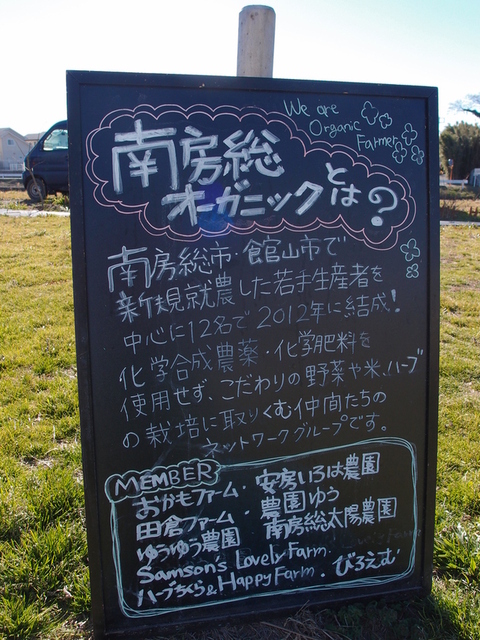 We are
Organic
Farmer
南房総
オーガニックとは？
南房総市・館山市で
新規就農した若手生産者を
中心に12名で2012年に結成!
化学合成農薬・化学肥料を
使用せず、こだわりの野菜や米、ハーブ
の栽培に取りくむ仲間たちの
ネットワークグループです。
MEMBER
おかもファーム・安房いろは農園
田倉ファーム・農園ゆう
ゆうゆう農園 南房総太陽農園
Samson's Lovely Farm.
ハーブちくら&Happy Farm・びろえむ